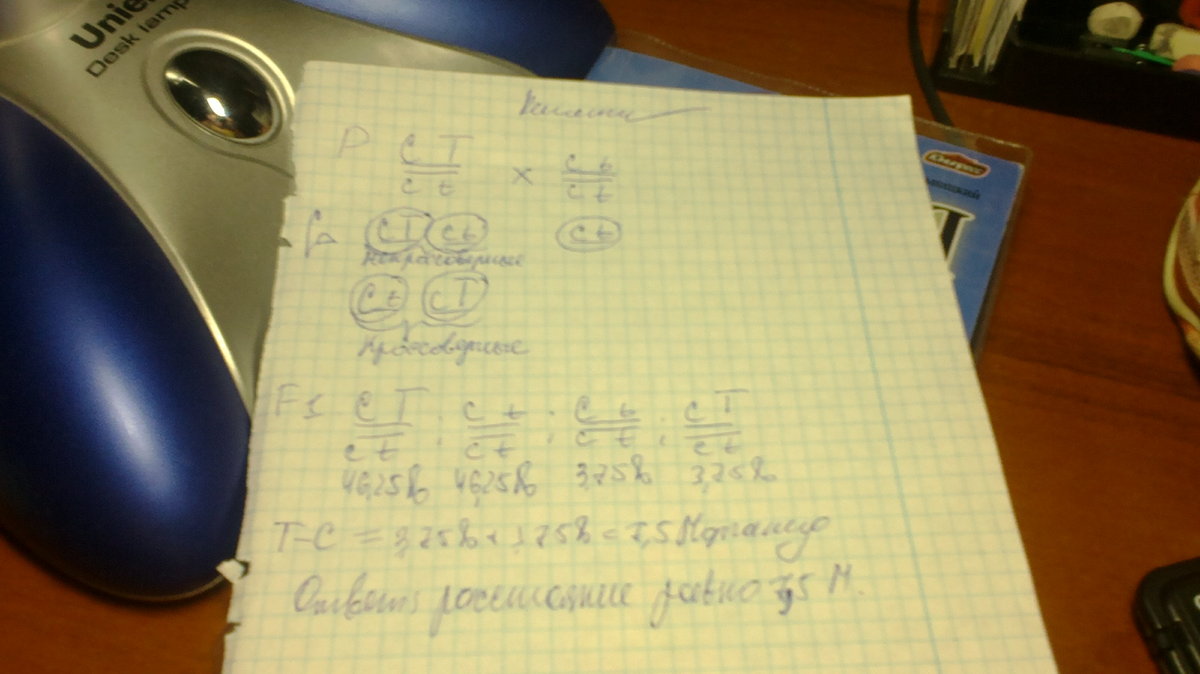 Uniel
Desk lamp
P C T x c t
c t c t
G CT ct ct
Некроссоверные
Ct cT
Кроссоверные
F1 C T ; c t ; C t ; c T
c t c t c t c t
46,25% 46,25% 3,75% 3,75%
T-C = 3,75% + 3,75% = 7,5 Морганид
Ответ: расстояние равно 7,5 М.